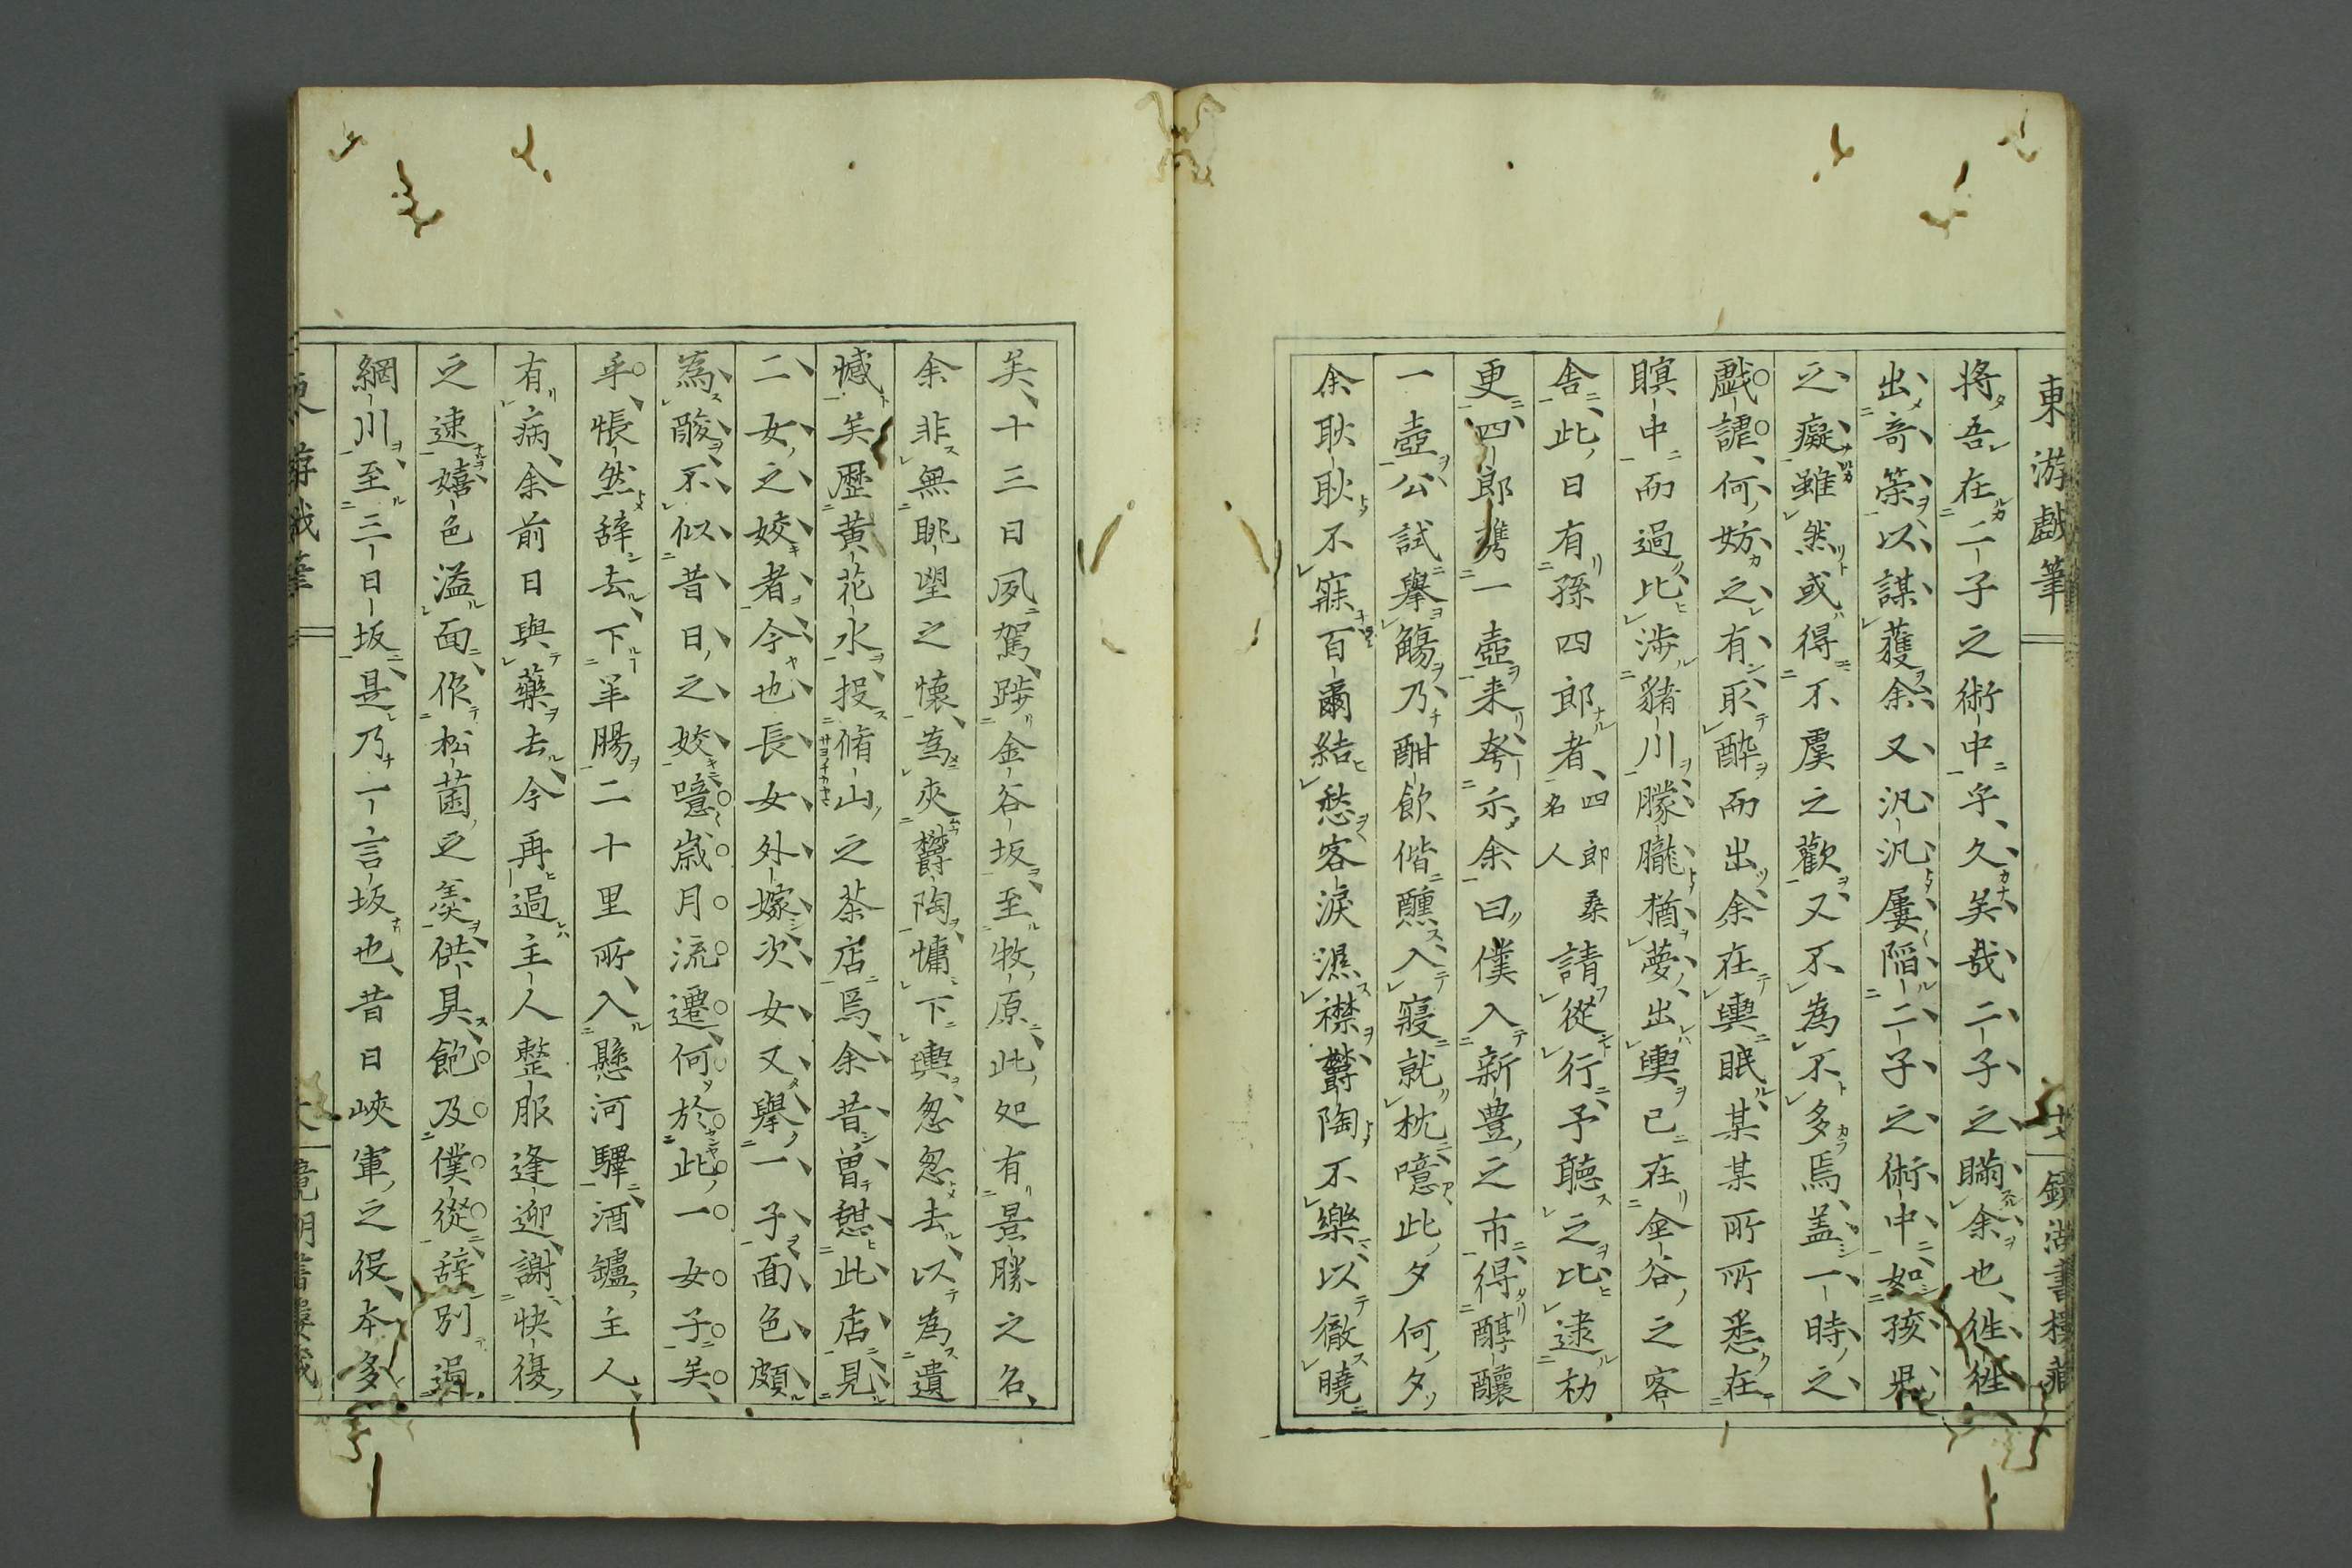 東游戲筆
将吾在二子之術中乎久矣哉二子之瞞余也徃徃
出奇策以謀獲余又汎汎屢陥二子之術中如孩児
之癡雖然或得不虞之歡又不為不多焉盖一時之
戲謔何妨之有取酔而出余在輿眠某某所所悉在
瞑中而過比渉豬川朦朧猶夢出輿已在金谷之客
舎此日有孫四郎者四郎桑名人請從行予聴之比逮初
更四郎携一壺来夸示余曰僕入新豊之市得醇釀
一壺公試擧觴乃酣飲偕醺入寢就枕噫此夕何夕
余耿耿不寐百爾結愁客淚濕襟欝陶不樂以徹曉
矣十三日夙駕踄金谷坂至牧原此処有景勝之名
余非無眺望之懷為夾欝陶慵下輿忽忽去以為遺
憾矣歷黄花水投脩山之茶店焉余昔曽憇此店見
二女之姣者今也長女外嫁次女又擧一子面色頗
為酸不似昔日之姣噫歳月流遷何於此一女子矣
乎悵然辞去下羊腸二十里所入懸河驛酒鑪主人
有病余前日與藥去今再過主人整服逢迎謝快復
之速嬉色溢面作松菌之羹供具飽及僕從辞別過
網川至三日坂是乃一言坂也昔日峽軍之役本多